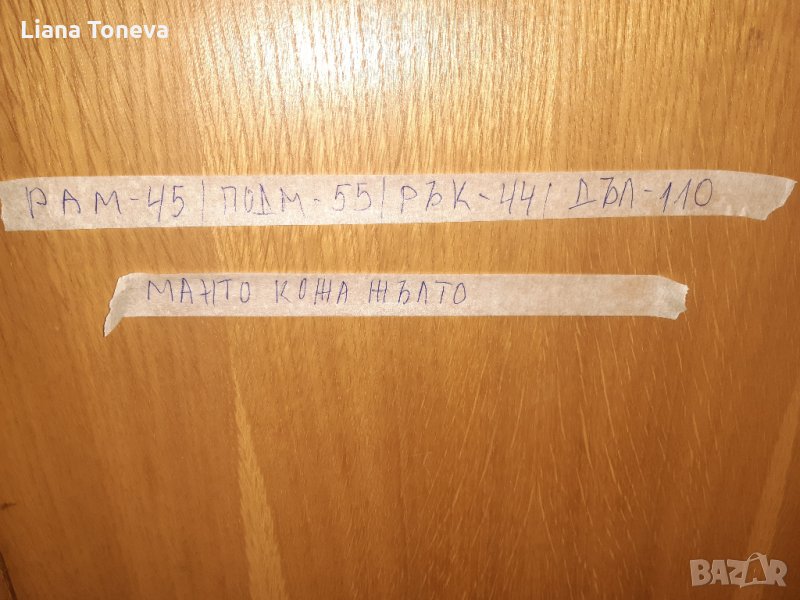 Liana Toneva
РАМ-45 | ПОДМ-55 | РЪК-44 | ДЪЛ-110
МАНТО КОЖА ЖЪЛТО
BAZAR